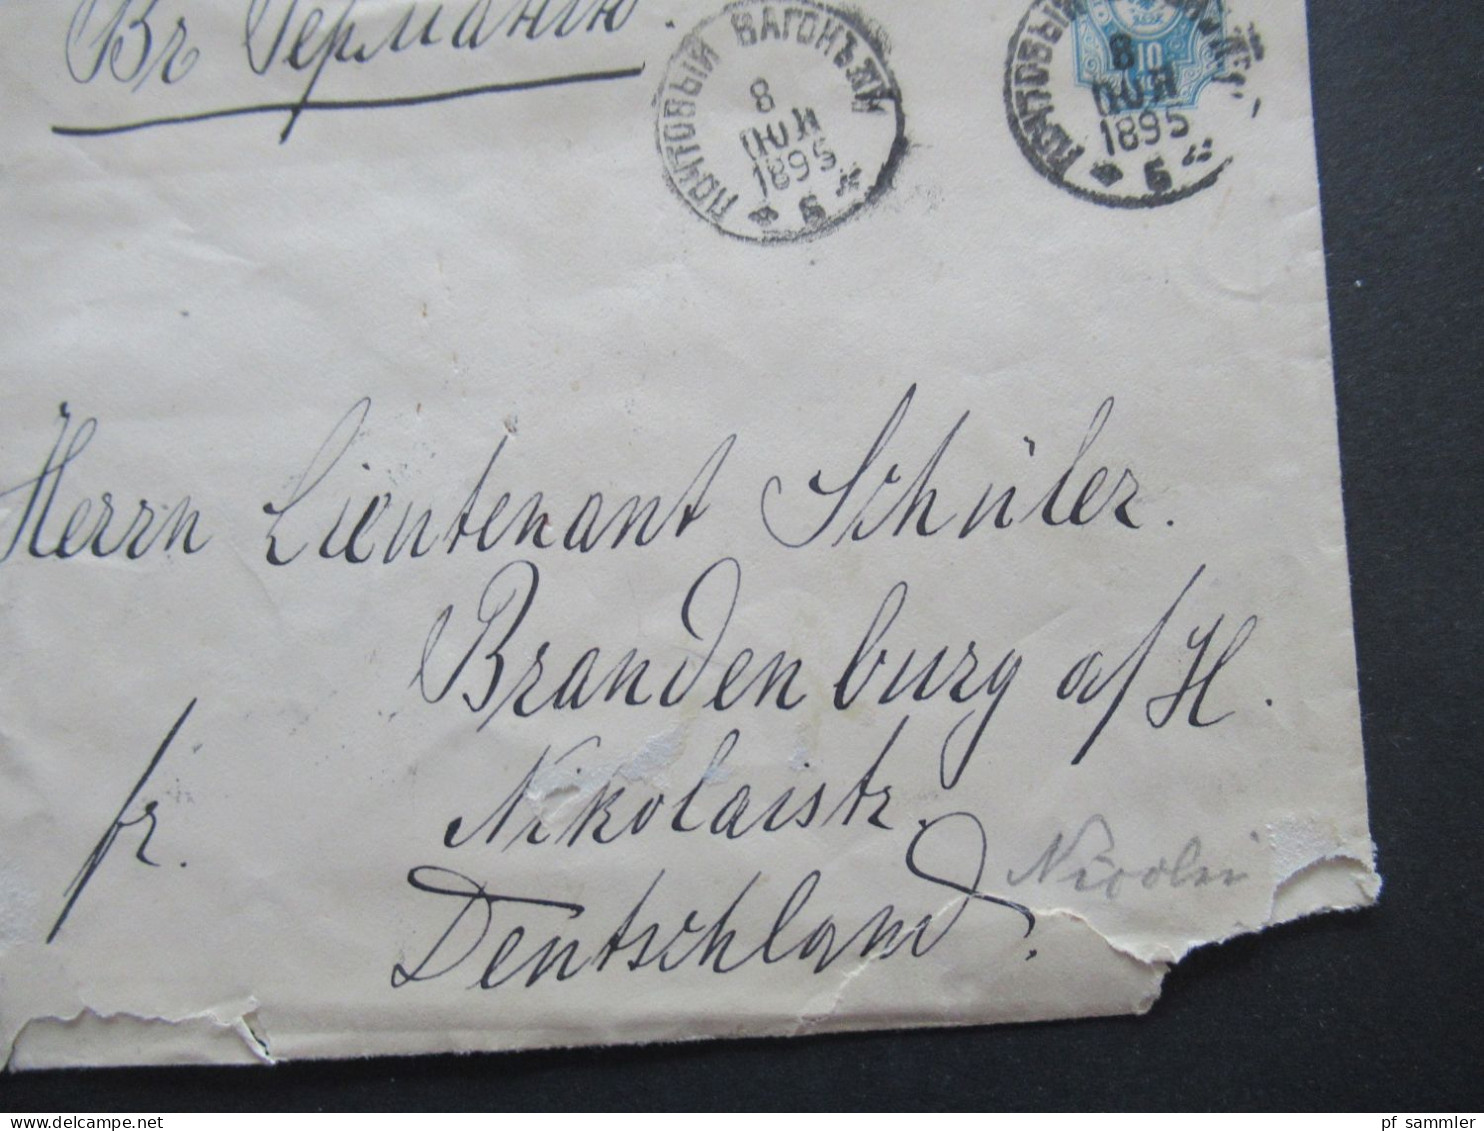 Въ Германію.
ПОЧТОВЫЙ ВАГОНЪ
8
ІЮЛ
1895
5
ПОЧТОВЫЙ
8
ІЮЛ
1895
5
10
Herrn Lieutenant Schüler.
Brandenburg a/H.
fr. Nikolaistr.
Deutschland.
Nicolai
pf sammler